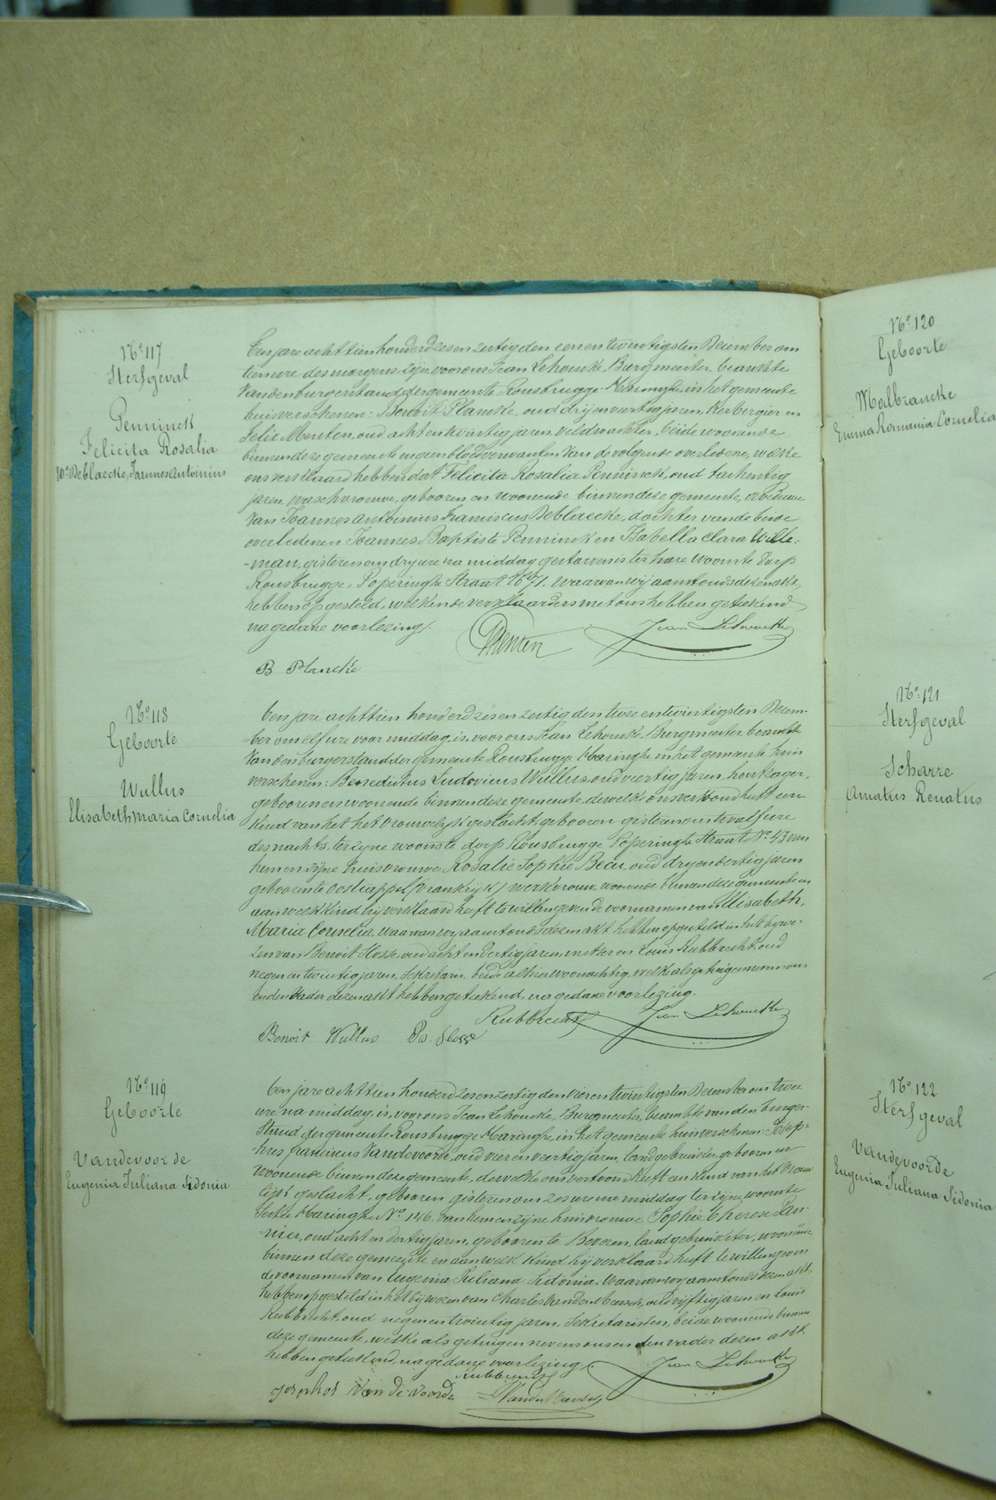 N° 117
Sterfgeval
Penninck
Felicita Rosalia
We Deblaecke, Joannes Antonius
Een jare acht tien honderd zes en zestig den een en twintigsten December om
tien ure des morgens, is voor ons Jean Lehoucke, Burgmeester, beambte
van den burgerstand der gemeente Rousbrugge-Haringhe, in het gemeente
huis verschenen: Benoit Plancke, oud drij en veertig jaren, herbergier en
Felix Menten, oud acht en veertig jaren, veldwachter, beide woonende
binnen deze gemeente, ongemiddeld verwanten van de volgende overledene, welke
ons verklaard hebben dat Felicita Rosalia Penninck, oud tachentig
jaren, woonende binnen deze gemeente, weduwe
van Joannes Antonius Franciscus Deblaecke, dochter van de beide
overledenen Joannes Baptiste Penninck en Isabella Clara Wille-
-man, gisteren om drij ure na middag gestorven is ter hare woonste dorp
Rousbrugge, Poperinghe Straat N° 71, waarvan wij aanstonds dezen akt
hebben opgesteld, welken de verklaarders met ons hebben geteekend
na gedane voorlezing.
FMenten Jean Lehoucke
B Plancke
N° 118
Geboorte
Wullus
Elisabeth Maria Cornelia
Een jare acht tien honderd zes en zestig den twee en twintigsten Decem-
ber om elf ure voor middag, is voor ons Jean Lehoucke, Burgmeester beambte
van den burgerstand der gemeente Rousbrugge-Haringhe in het gemeente huis
verschenen: Benedictus Ludovicus Wullus, oud veertig jaren,
geboren en woonende binnen deze gemeente, dewelke ons vertoond heeft een
kind van het vrouwelijk geslacht, geboren gisteren om twalf ure
des nachts, ter zijne woonste dorp Rousbrugge, Poperinghe Straat N° 43 van
hem en zijne huisvrouwe Rosalie Sophie Becu, oud drij en dertig jaren
geboren te Oostcappel (Frankrijk) werkvrouw, woonende binnen deze gemeente en
aan welk kind hij verklaard heeft te willen geven de voornamen van Elisabeth,
Maria Cornelia, waarvan wij aanstonds dezen akt hebben opgesteld in het bijwe-
zen van Benoit Hosse, oud acht en dertig jaren, en Louis Rubbrecht, oud
negen en twintig jaren, Sekretaris, beide alhier woonachtig, welke als getuigen nevens ons
en den vader dezen akt hebben geteekend, na gedane voorlezing.
Rubbrecht Jean Lehoucke
Benoit Wullus Bs. Hosse
N° 119
Geboorte
Vandevoorde
Eugenia Juliana Sidonia
Een jare acht tien honderd zes en zestig den vier en twintigsten December om twee
ure na middag, is voor ons Jean Lehoucke, Burgmeester, beambte van den burger-
stand der gemeente Rousbrugge-Haringhe, in het gemeente huis verschenen: Josep-
hus Franciscus Vandevoorde, oud vier en veertig jaren, landgebruiker, geboren en
woonende binnen deze gemeente, dewelke ons vertoond heeft een kind van het vrouwe-
lijk geslacht, geboren gisteren om zes ure na middag ter zijne woonste
Haringhe N° 146, van hem en zijne huisvrouwe Sophie Therese
oud acht en dertig jaren, geboren te Beveren, landgebruikster, woonende
binnen deze gemeente en aan welk kind hij verklaard heeft te willen geven
de voornamen van Eugenia Juliana Sidonia, waarvan wij aanstonds dezen akt
hebben opgesteld in het bijwezen van Charles oud vijftig jaren en Louis
Rubbrecht, oud negen en twintig jaren, Sekretaris, beide woonende binnen
deze gemeente, welke als getuigen nevens ons en den vader dezen akt
hebben geteekend, na gedane voorlezing.
Rubbrecht Jean Lehoucke
Josephus Van de Voorde
N° 120
Geboorte
Malbrancke
Emma Romania Cornelia
N° 121
Sterfgeval
Scharre
Amatus Renatus
N° 122
Sterfgeval
Vandevoorde
Eugenia Juliana Sidonia